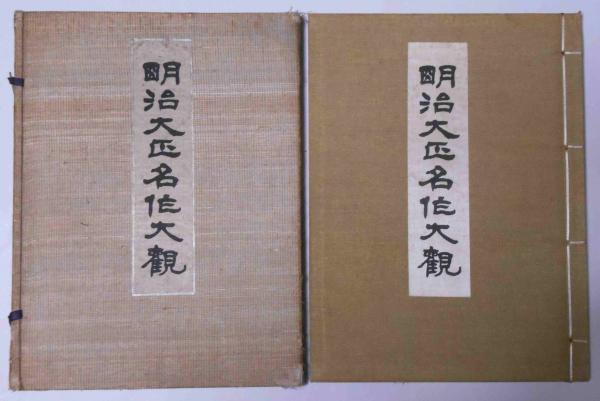 明治大正名作大觀
明治大正名作大觀